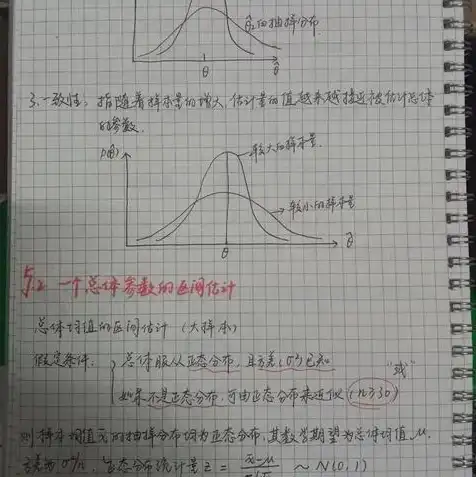 θ̂₂的抽样分布
θ
θ̂
3. 一致性：指随着样本量的增大，估计量的值越来越接近被估计总体
的参数.
P(θ̂)
较大的样本量
较小的样本量
θ
θ̂
5.2 一个总体参数的区间估计
总体均值的区间估计（大样本）
假定条件. 总体服从正态分布，且方差(σ²)已知
“或”
如果不是正态分布，可由正态分布来近似（n≥30）
则样本均值x̄的抽样分布均为正态分布，其数学期望为总体均值μ.
方差为σ²/n. 正态分布统计量z = x̄-μ ~ N(0,1)